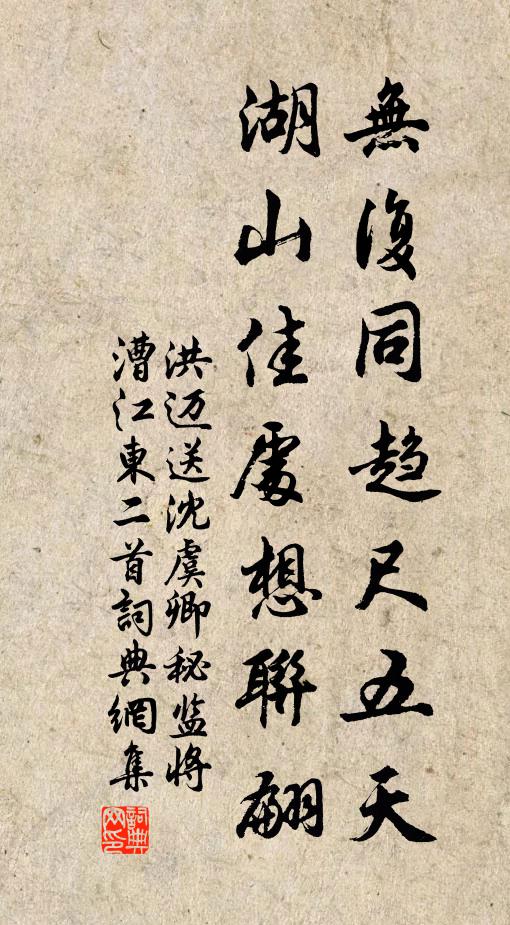 無復同趨尺五天
湖山佳處想聯翩
洪迈送沈虞卿秘监将
漕江東二首詞典網集
詞典
网印